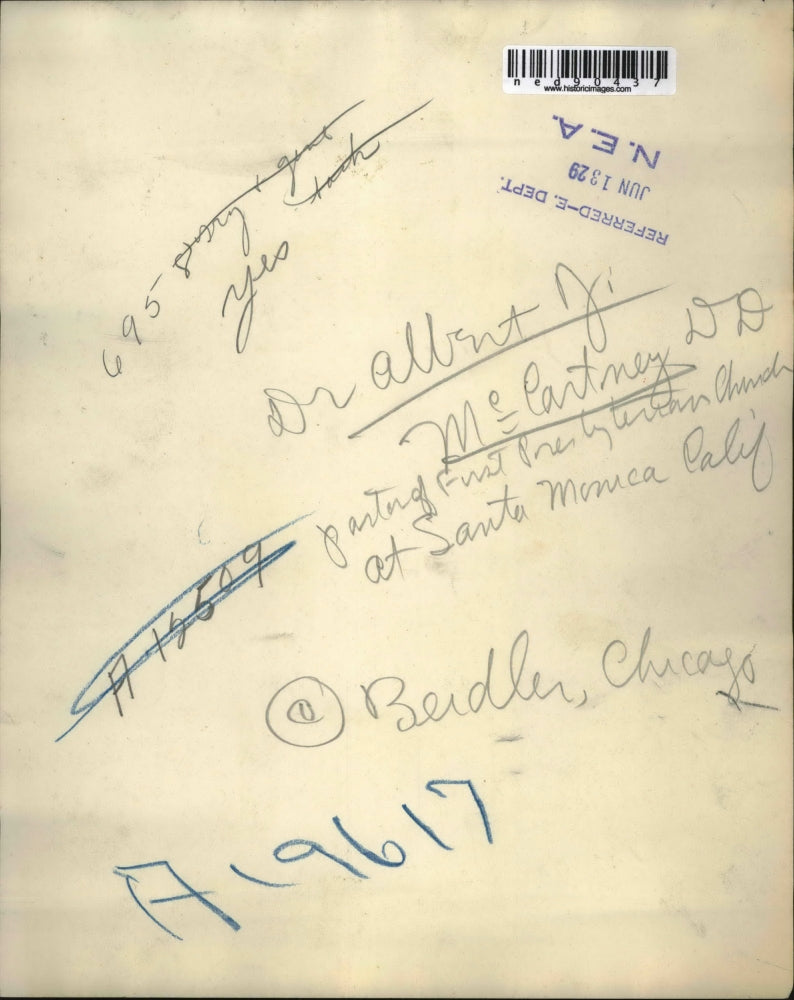 ned90437
www.historicimages.com
N.E.A.
JUN 13 29
REFERRED-E. DEPT.
695
yes
Dr Albert J.
McCartney DD
pastor of First Presbyterian Church
at Santa Monica Calif
A-12509
Chicago
A-9617